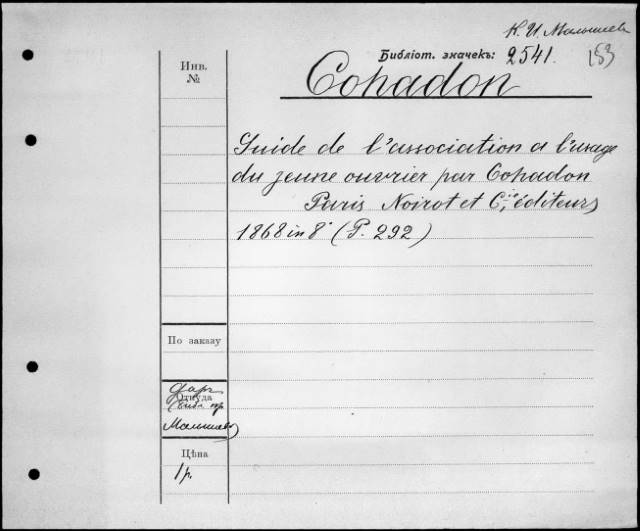 К. И. Малышев
Библіот. значекъ: 2541. 153
Инв. №
Cohadon
Guide de l'association a l'usage
du jeune ouvrier par Cohadon
Paris Noirot et Cie, éditeurs
1868 in 8° (P. 292)
По заказу
Откуда
Даръ
Малышев
Цѣна
1 р.